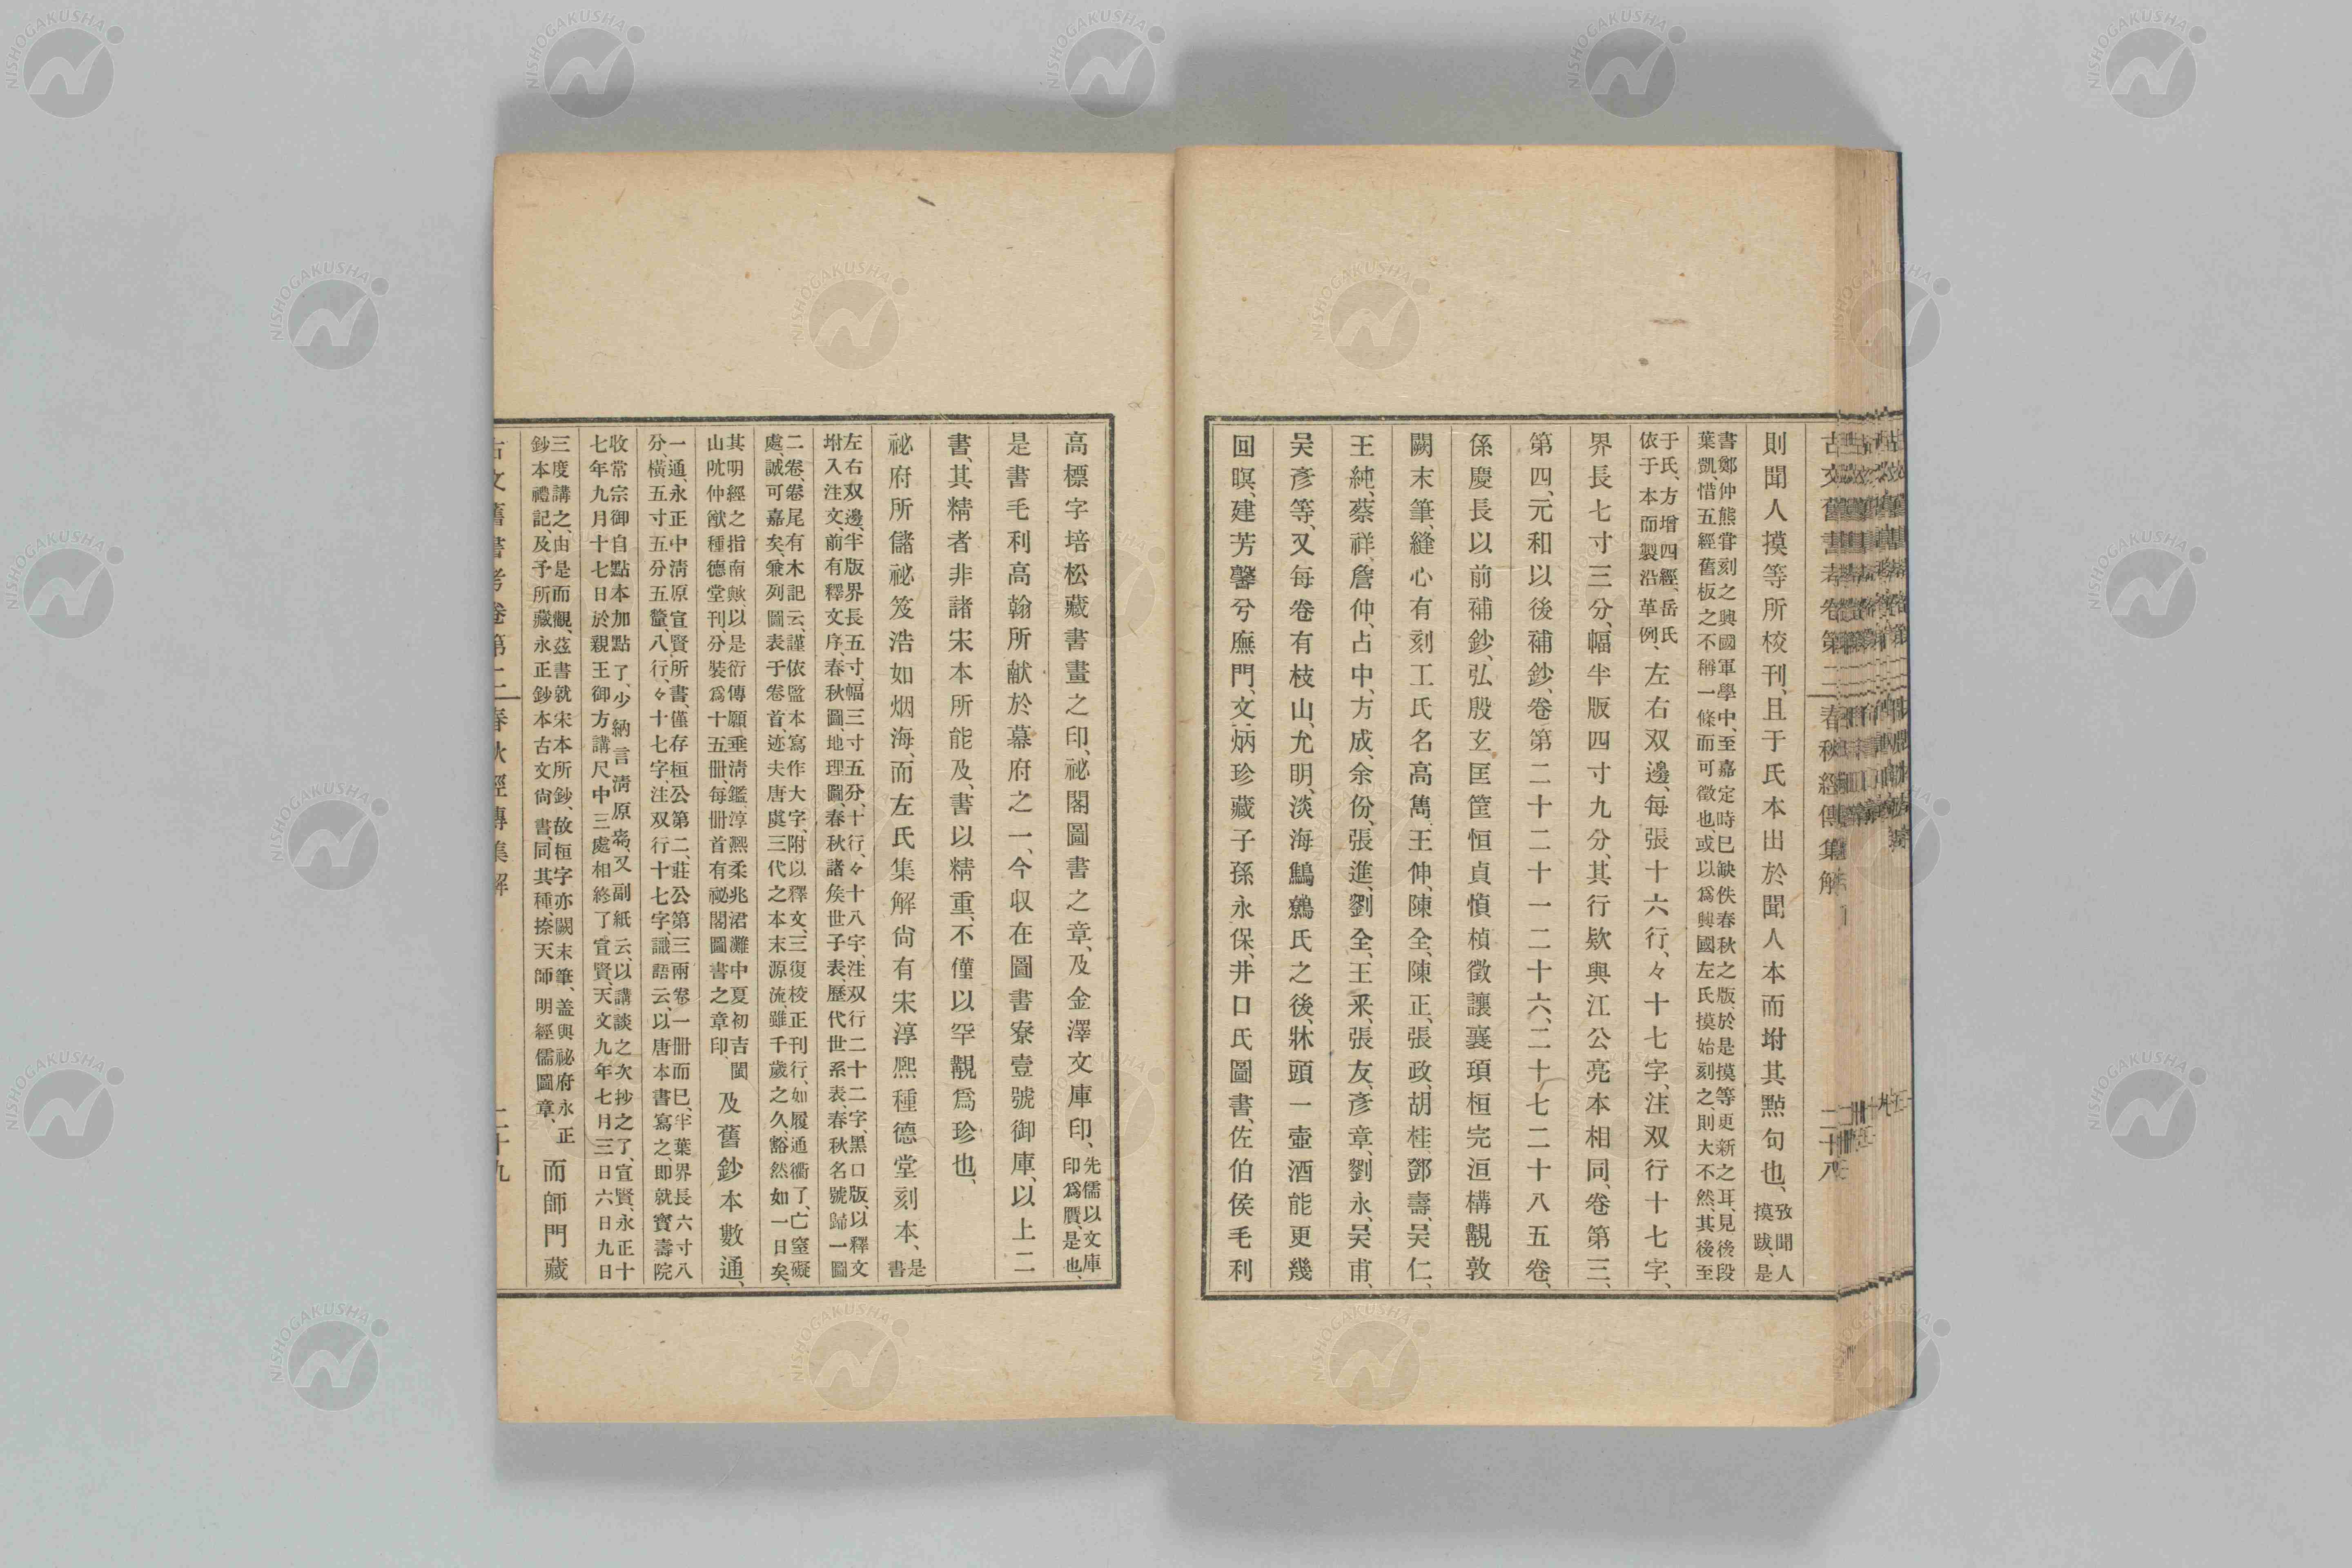 古文舊書考卷第二 春秋經傳集解 二十八
則聞人摸等所校刊、且于氏本出於聞人本而坿其㸃句也、
攷聞人
摸跋、是
書鄭仲熊甞刻之興國軍學中、至嘉定時已缺佚春秋之版、於是摸等更新之耳、見後段
葉凱、惜五經舊板之不稱一條而可徵也、或以爲興國左氏摸始刻之、則大不然、其後至
于氏、方增四經、岳氏
依于本而製沿革例、
左右双邊、每張十六行、々十七字、注双行十七字、
界長七寸三分、幅半版四寸九分、其行欵與江公亮本相同、卷第三、
第四、元和以後補鈔、卷第二十二十一二十六、二十七二十八五卷、
係慶長以前補鈔、弘殷玄匡筐恒貞愼楨徵讓襄頊桓完洹構覯敦
闕末筆、縫心有刻工氏名高雋、王伸、陳全、陳正、張政、胡桂、鄧壽、吴仁、
王純、蔡祥、詹仲、占中、方成、余份、張進、劉全、王釆、張友、彥章、劉永、吴甫、
吴彥等、又每卷有枝山、允明、淡海鷦鷯氏之後、牀頭一壺酒能更幾
回暝、建芳馨兮廡門、文炳珍藏子孫永保、井口氏圖書、佐伯侯毛利
高標字培松藏書畫之印、祕閣圖書之章、及金澤文庫印、
先儒以文庫
印爲贋、是也、
是書毛利高翰所献於幕府之一、今収在圖書寮壹號御庫、以上二
書、其精者非諸宋本所能及、書以精重、不僅以罕覯爲珍也、
祕府所儲祕笈浩如烟海、而左氏集解尙有宋淳熙種德堂刻本、
是
書
左右双邊、半版界長五寸、幅三寸五分、十行、々十八字、注双行二十二字、黑口版、以釋文
坿入注文、前有釋文序、春秋圖、地理圖、春秋諸矦世子表、歷代世系表、春秋名號歸一圖
二卷、卷尾有木記云、謹依監本寫作大字、附以釋文、三復校正刊行、如履通衢了、亡窒礙
處、誠可嘉矣、兼列圖表于卷首、迹夫唐虞三代之本末源流、雖千歲之久、豁然如一日矣、
其明經之指南歟、以是衍傳願垂淸鑑、淳熙柔兆涒灘中夏初吉閩
山阮仲猷種德堂刊、分裝爲十五冊、每冊首有祕閣圖書之章印、
及舊鈔本數通、
一通、永正中淸原宣賢所書、僅存桓公第二、莊公第三兩卷一冊而已、半葉界長六寸八
分、橫五寸五分五釐、八行、々十七字、注双行十七字、識語云、以唐本書寫之、卽就寳壽院
收常宗御自點本加點了、少納言淸原、又副紙云、以講談之次抄之了、宣賢、永正十
七年九月十七日於親王御方、講尺中三處相終了宣賢、天文九年七月三日六日九日
三度講之、由是而觀、茲書就宋本所鈔、故桓字亦闕末筆、盖與祕府永正
鈔本禮記、及予所藏永正鈔本古文尙書、同其種、捺天師明經儒圖章、
而師門藏
古文舊書考卷第二 春秋經傳集解 二十九
NISHOGAKUSHA